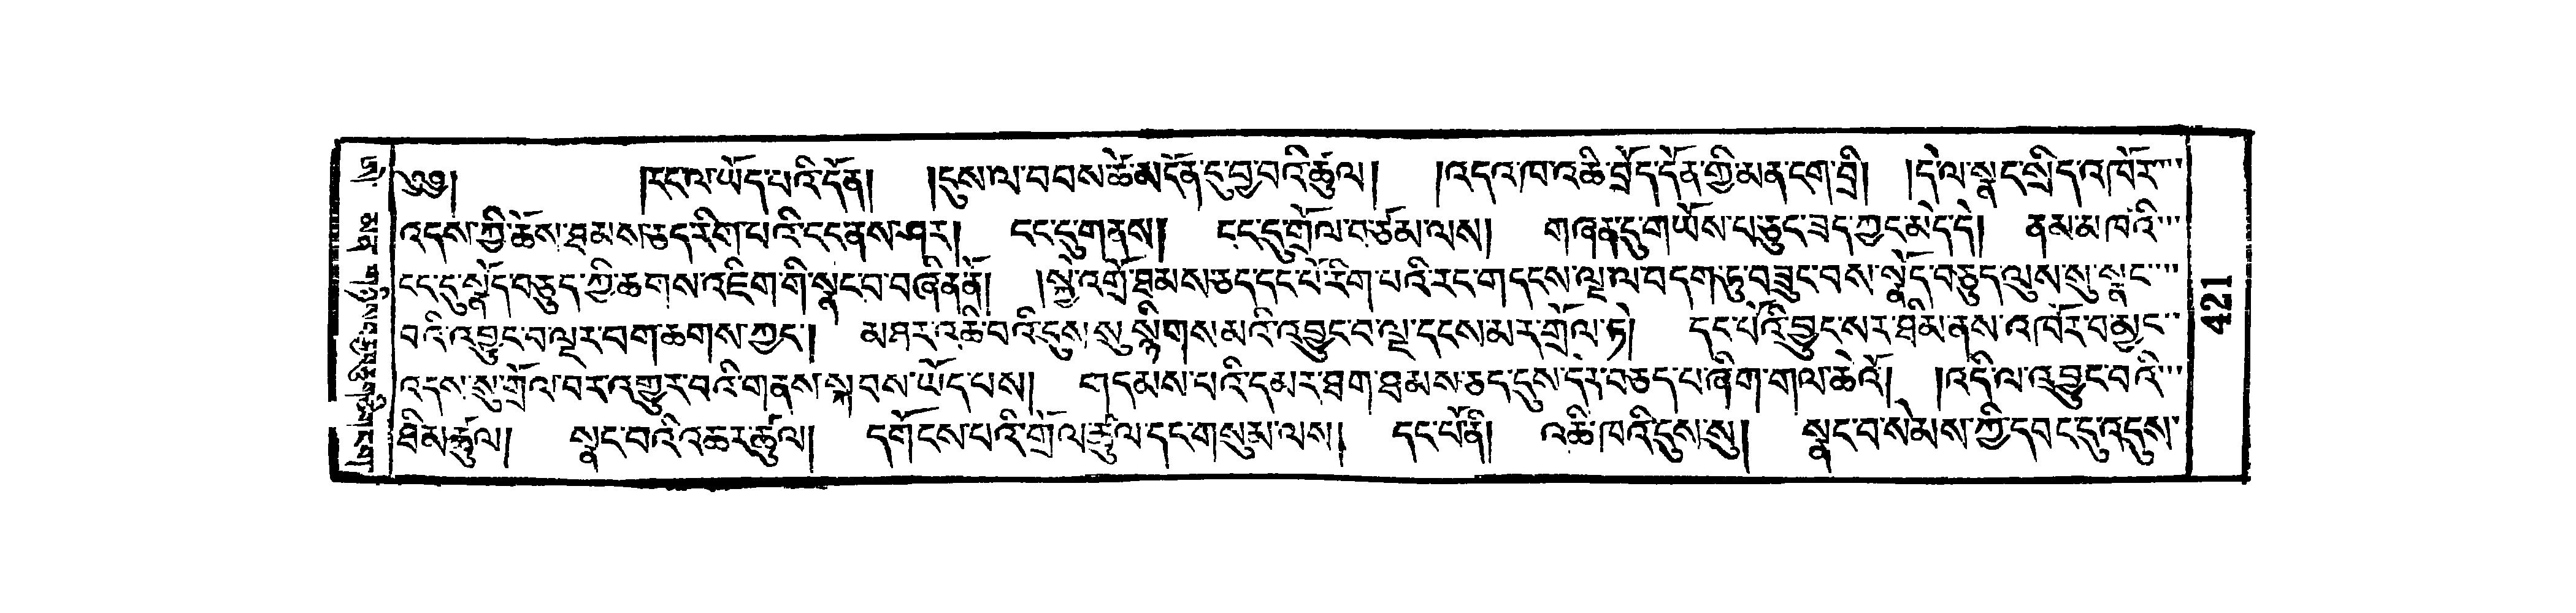 ༄༅། །རང་ལ་ཡོད་པའི་དོན། །དུས་ལ་བབས་ཚེ་མངོན་དུ་བྱ་བའི་ཚུལ། །འདའ་ཁ་འཆི་བྲོད་དོན་གྱི་མན་ངག་བྲི། །དེ་ལ་སྣང་སྲིད་འཁོར་
འདས་ཀྱི་ཆོས་ཐམས་ཅད་རིག་པའི་ངང་ནས་ཤར། ངང་དུ་གནས། ངང་དུ་གྲོལ་བ་ཙམ་ལས། གཞན་དུ་གཡོས་པ་ཅུང་ཟད་ཀྱང་མེད་དེ། ནམ་མཁའི་
ངང་དུ་སྣོད་བཅུད་ཀྱི་ཆགས་འཇིག་གི་སྣང་བ་བཞིན་ནོ། །སྐྱེ་འགྲོ་ཐམས་ཅད་དང་པོ་རིག་པའི་རང་གདངས་ལྔ་ལ་བདག་ཏུ་བཟུང་བས་སྣོད་བཅུད་ལུས་སུ་སྣང་
བའི་འབྱུང་བ་ལྔར་བག་ཆགས་ཀྱང་། མཐར་འཆི་བའི་དུས་སུ་སྙིགས་མའི་འབྱུང་བ་ལྔ་དངས་མར་གྲོལ་ཏེ། དང་པོའི་བྱུང་སར་ཐིམ་ནས་འཁོར་བ་མྱང་
འདས་སུ་གྲོལ་བར་འགྱུར་བའི་གནས་སྐབས་ཡོད་པས། གདམས་པའི་དམར་ཐག་ཐམས་ཅད་དུས་དེར་བཅད་པ་ཞིག་གལ་ཆེའོ། །འདི་ལ་འབྱུང་བའི་
ཐིམ་ཚུལ། སྣང་བའི་འཆར་ཚུལ། དགོངས་པའི་གྲོལ་ཚུལ་དང་གསུམ་ལས། དང་པོ་ནི། འཆི་ཁའི་དུས་སུ། སྣང་བ་སེམས་ཀྱི་དབང་དུ་འདུས་